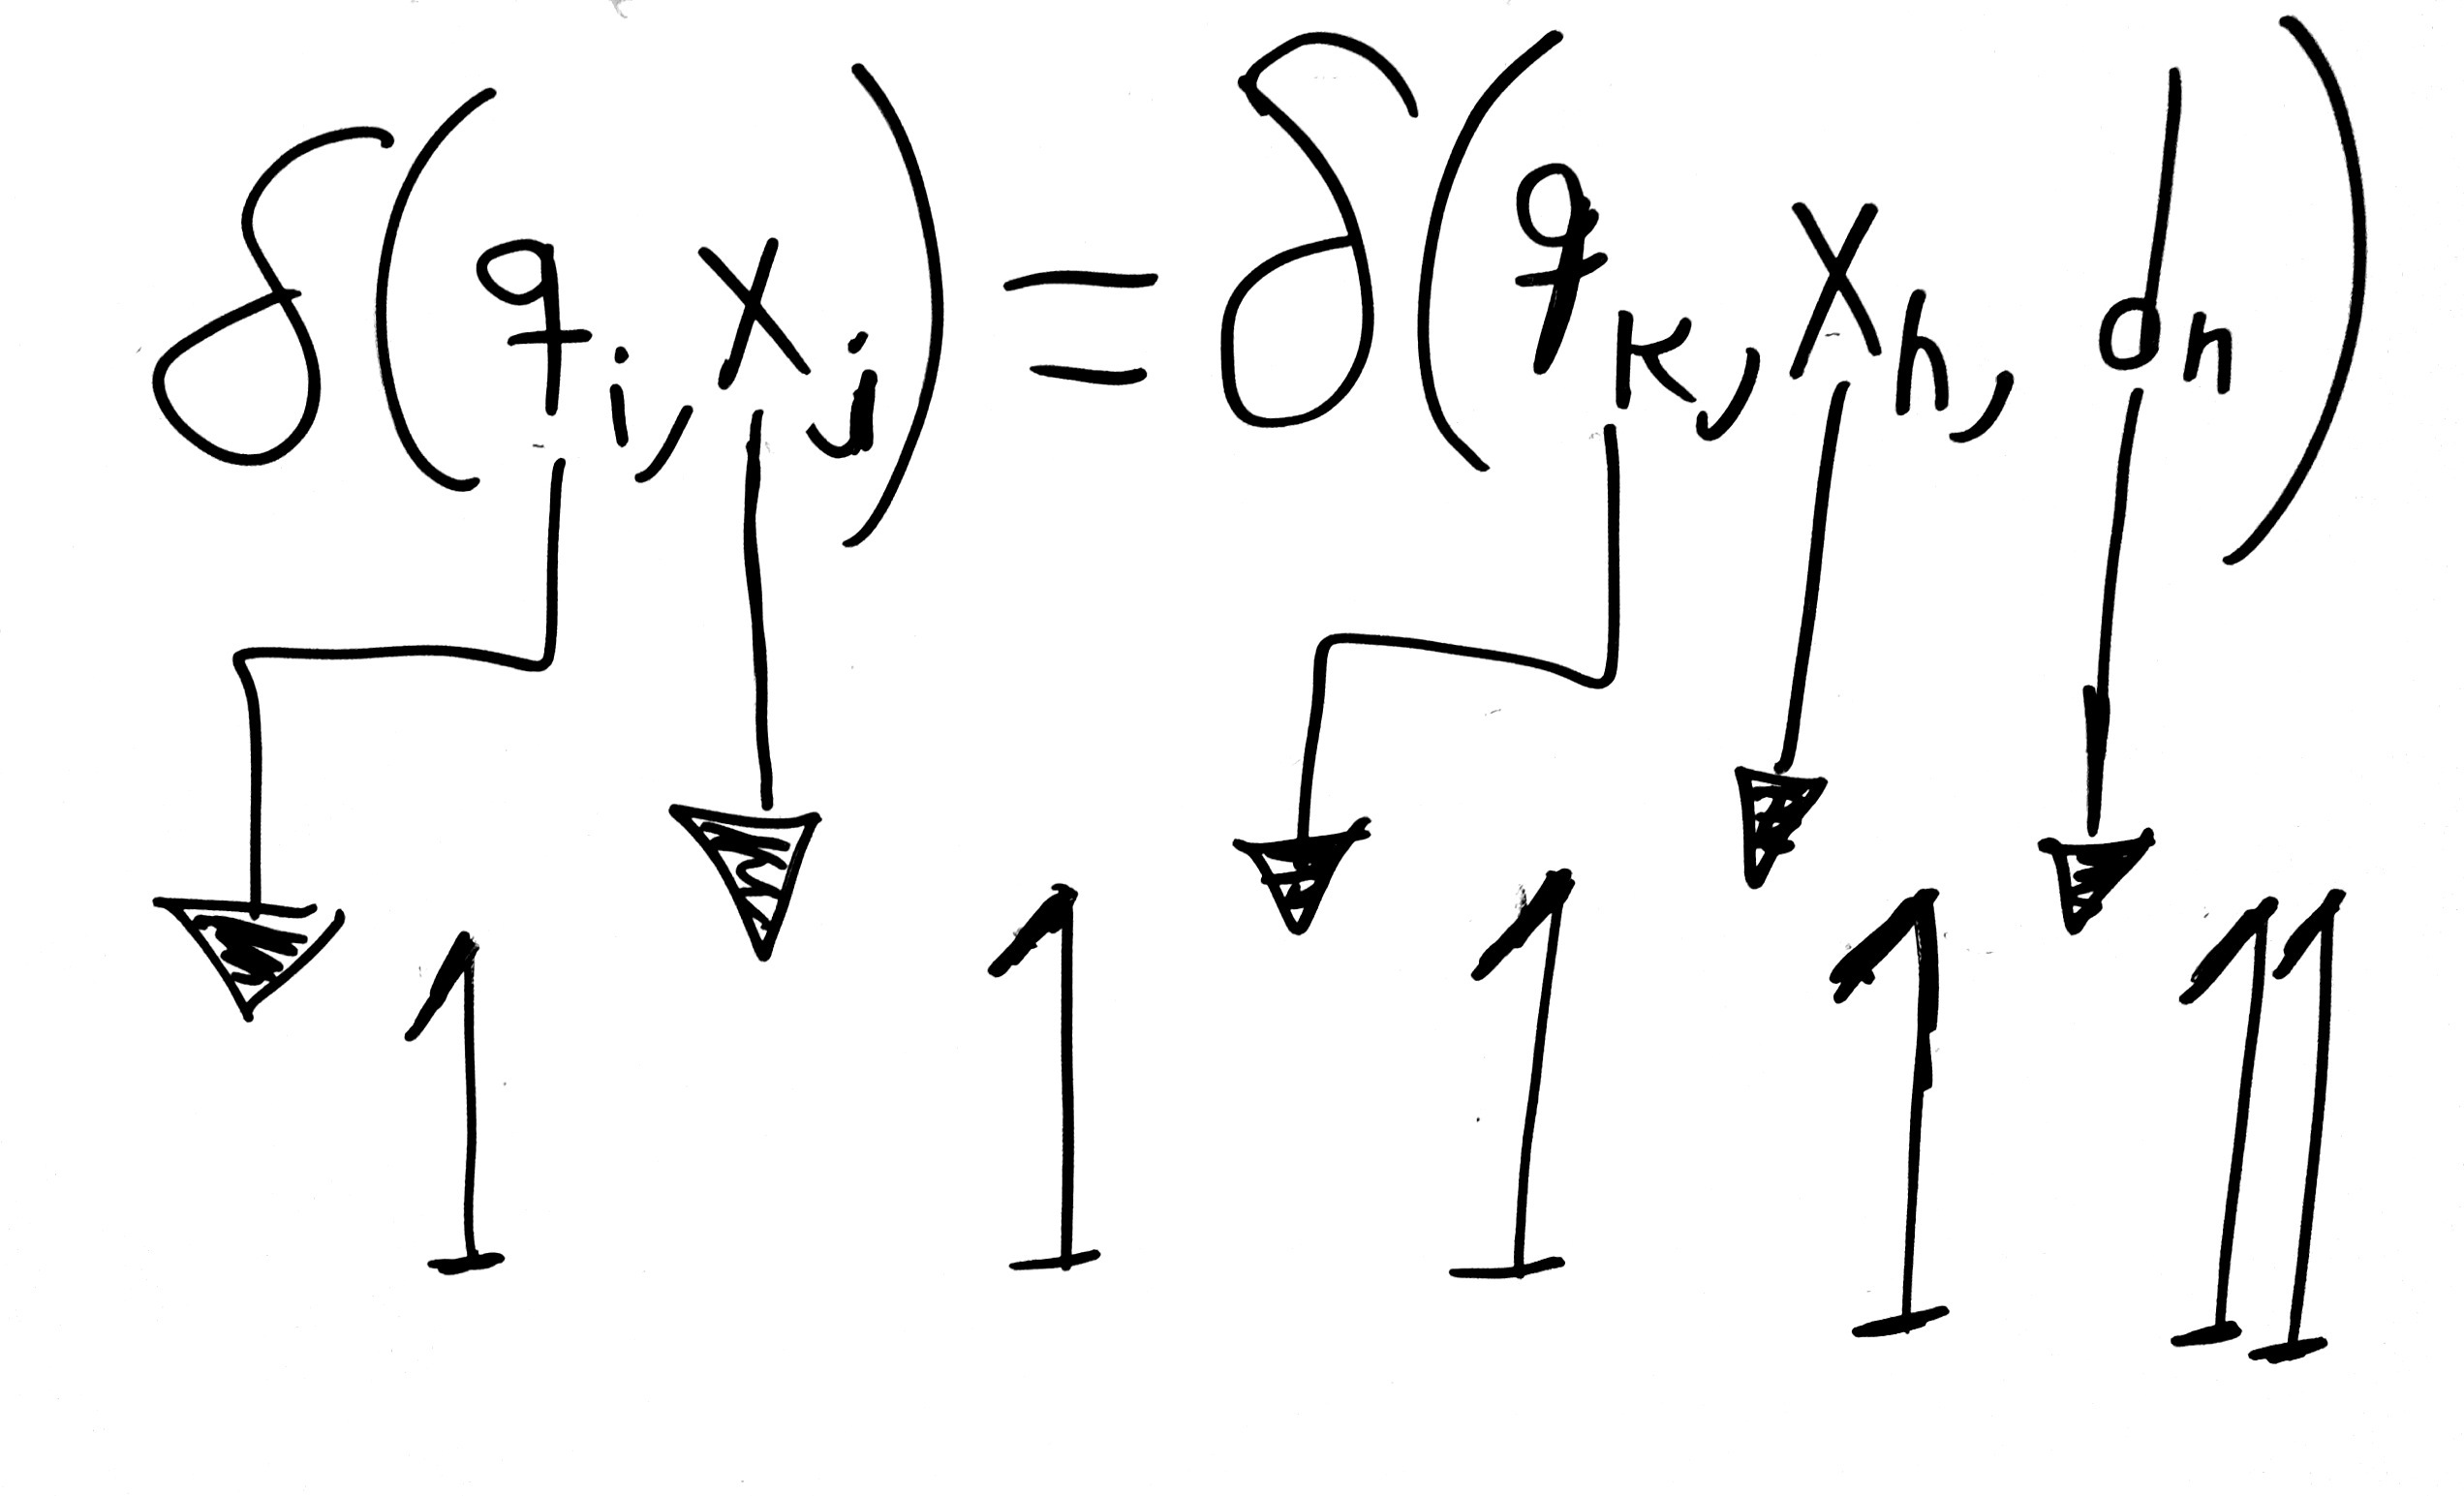 δ(qᵢ, Xⱼ) = δ(qₖ, Xₕ, dₙ)
1 1 1 1 11